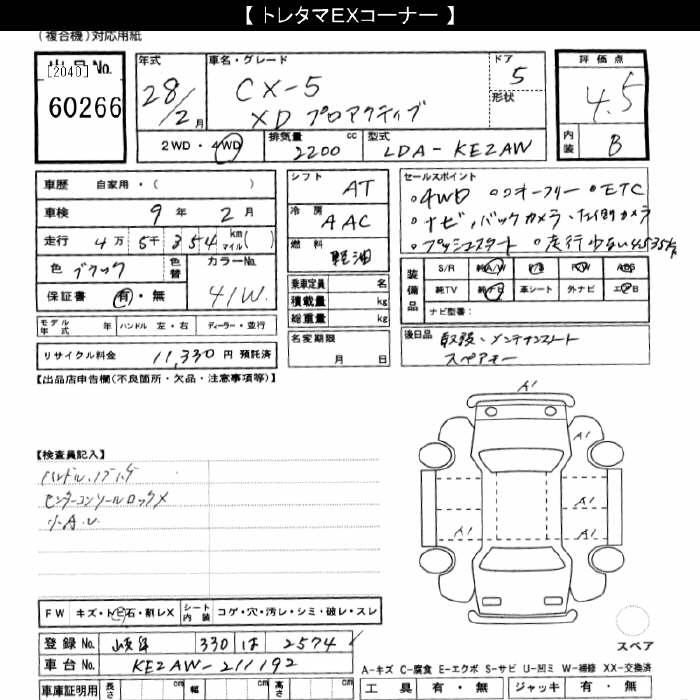 【 トレタマEXコーナー 】
(複合機)対応用紙
出品No.
[2040]
60266
年式
28/2月
車名・グレード
CX-5
XD プロアクティブ
ドア
5
形状
評価点
4.5
内装
B
2WD・4WD
排気量
2200 cc
型式
LDA-KE2AW
車歴 自家用・( )
車検 9年 2月
走行 4万 5千 354 km マイル( )
色 ブラック
色替
カラーNo.
41W.
保証書 有・無
モデル年式 年 ハンドル 左・右 ディーラー・並行
リサイクル料金 11,330 円 預託済
シフト AT
冷房 AAC
燃料 軽油
乗車定員 名
積載量 kg
総重量 kg
名変期限
月 日
セールスポイント
。4WD 。ワンオーナー 。ETC
。ナビ、バックカメラ、左側カメラ
。プッシュスタート 。走行少ない
装備品
S/R 純A/W P/S P/W ABS
純TV 純ナビ 革シート 外ナビ エアB
ナビ型番：
後日品
取説・メンテナンスノート
スペアキー
【出品店申告欄(不良箇所・欠品・注意事項等)】
【検査員記入】
センターコンソールロック×
小A.U.
FW キズ・トビ石・割レX
シート内装 コゲ・穴・汚レ・シミ・破レ・スレ
登録No. 岐阜 330 は 2574
車台No. KE2AW-211192
車庫証明用 長さ cm 幅 cm 高さ cm
A1
A1
A1
A1
A1
スペア
A-キズ C-腐食 E-エクボ S-サビ U-凹ミ W-補修 XX-交換済
工具 有・無 ジャッキ 有・無